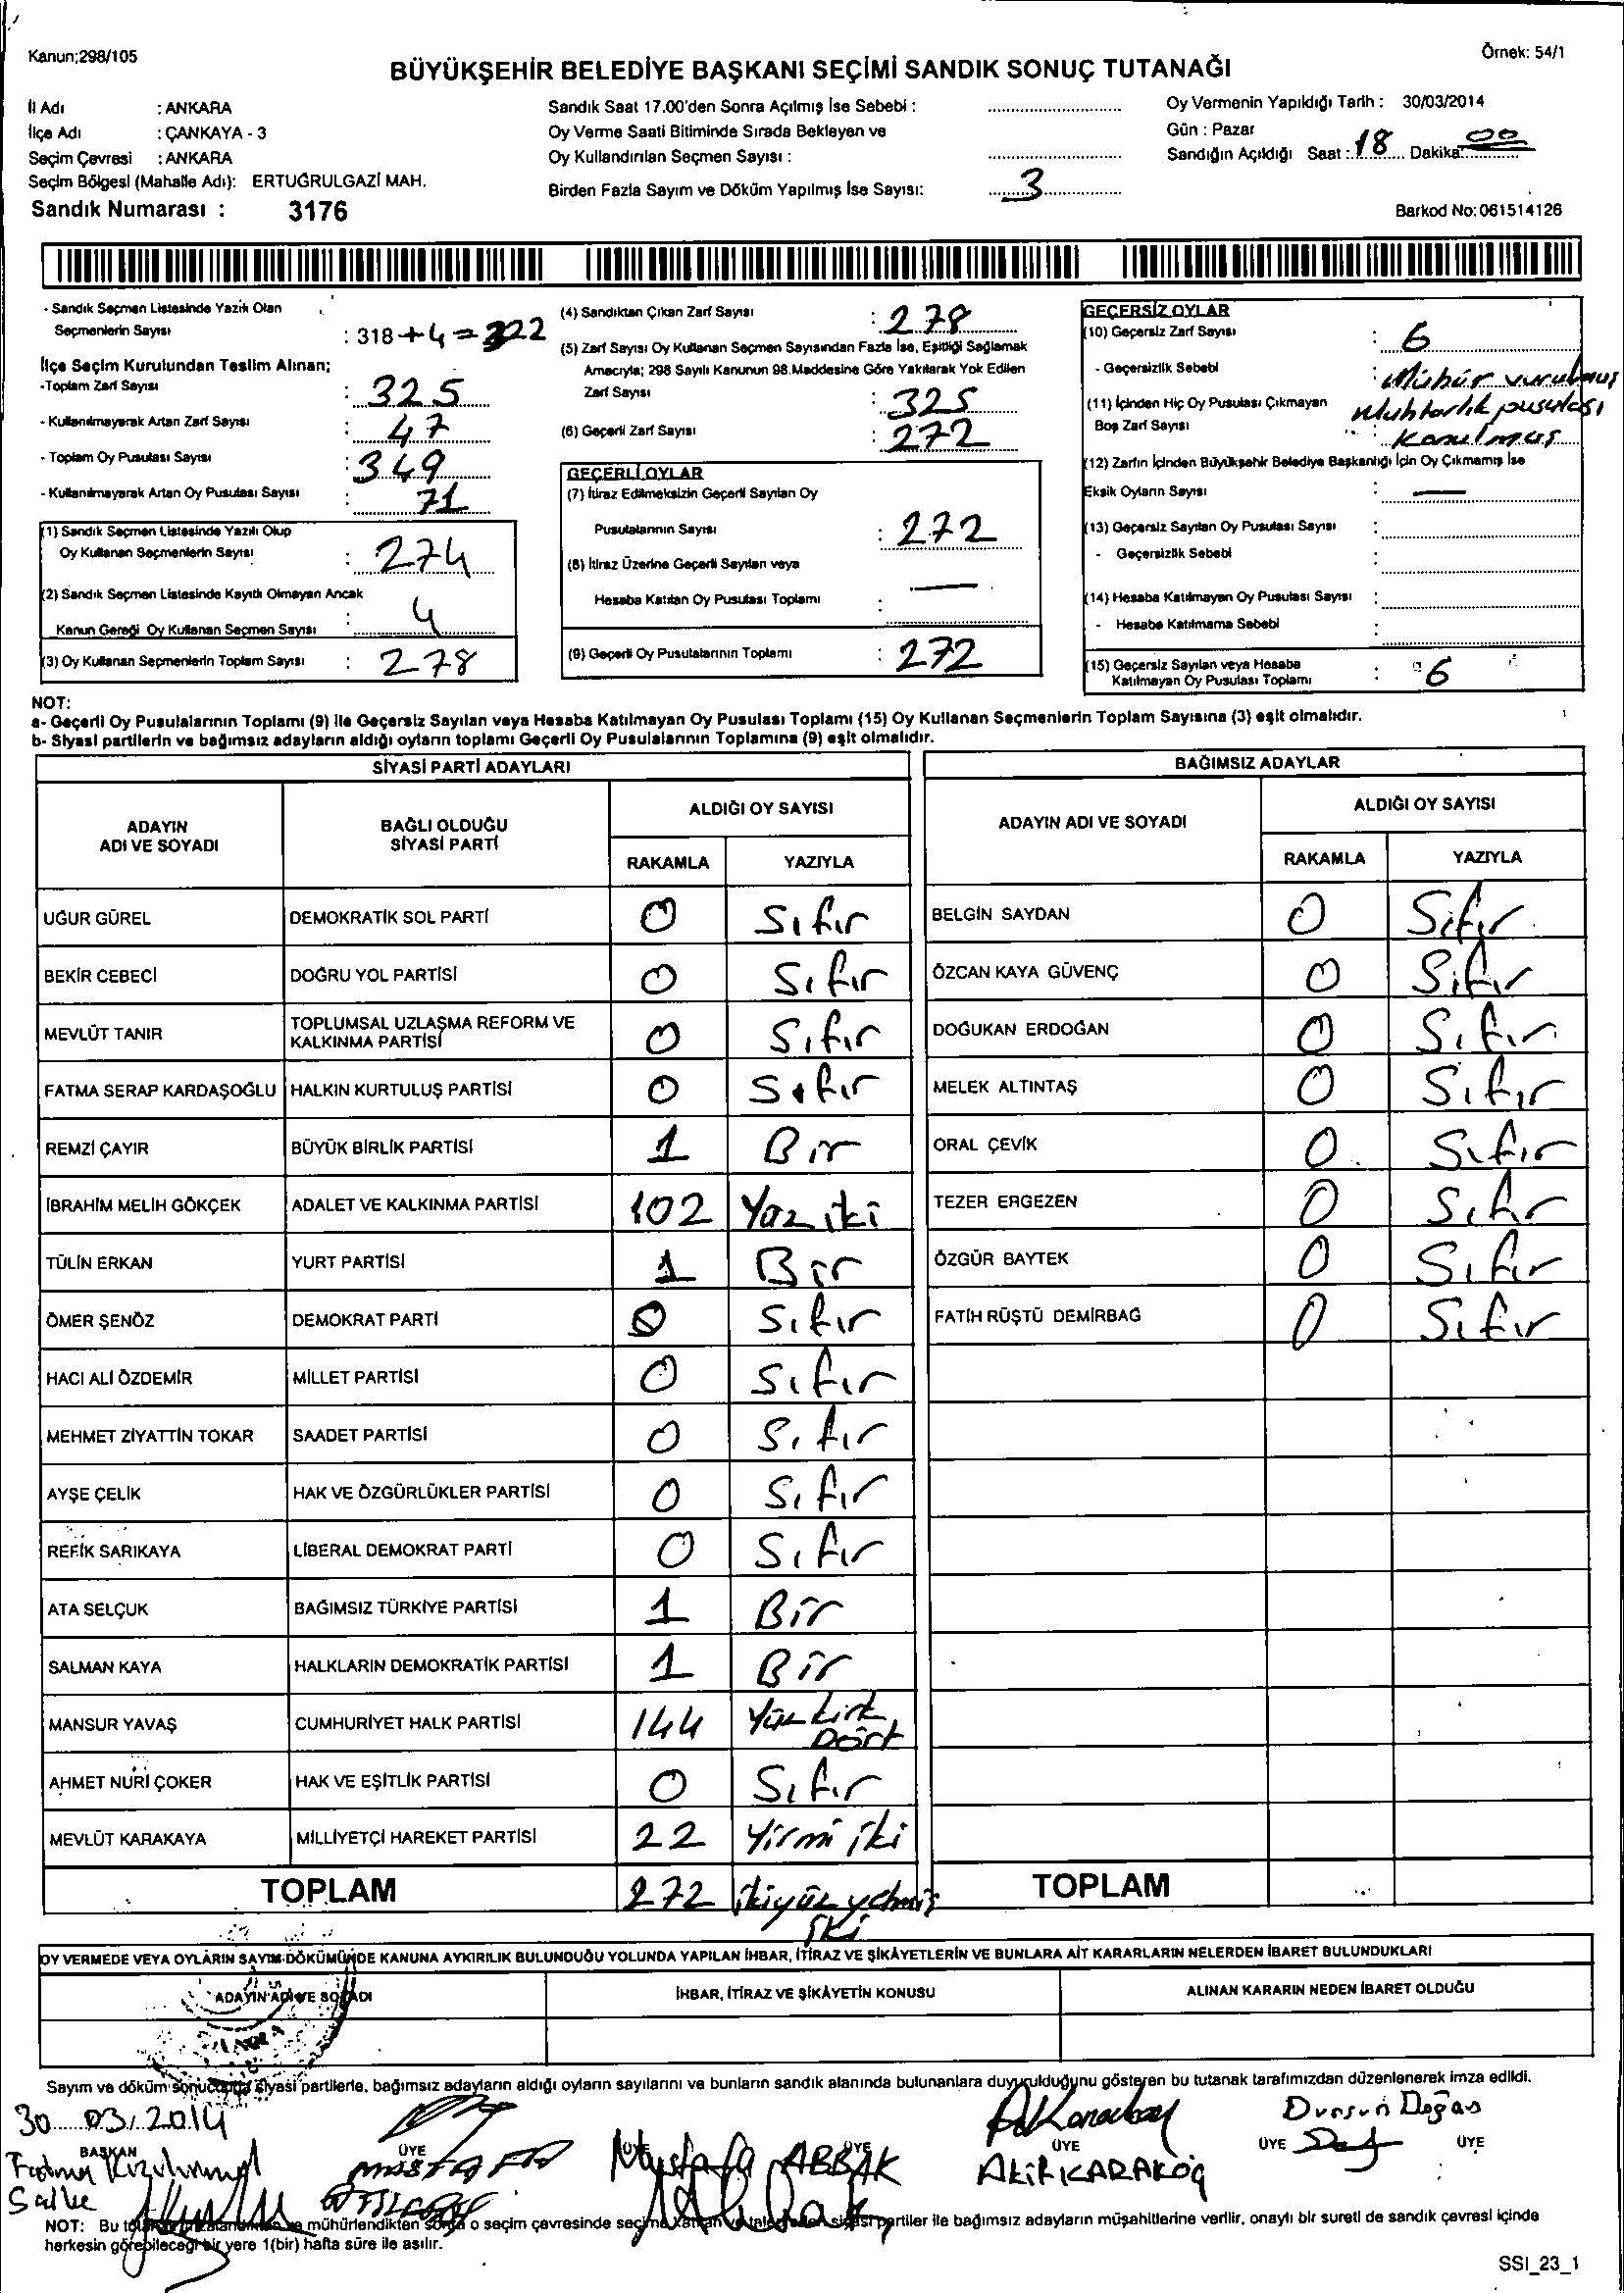 Kanun;298/105
Örnek: 54/1
BÜYÜKŞEHİR BELEDİYE BAŞKANI SEÇİMİ SANDIK SONUÇ TUTANAĞI
İl Adı : ANKARA
İlçe Adı : ÇANKAYA - 3
Seçim Çevresi : ANKARA
Seçim Bölgesi (Mahalle Adı): ERTUĞRULGAZİ MAH.
Sandık Numarası : 3176
Sandık Saat 17.00'den Sonra Açılmış İse Sebebi :
Oy Verme Saati Bitiminde Sırada Bekleyen ve
Oy Kullandırılan Seçmen Sayısı :
Birden Fazla Sayım ve Döküm Yapılmış İse Sayısı: 3
Oy Vermenin Yapıldığı Tarih : 30/03/2014
Gün : Pazar
Sandığın Açıldığı Saat : 18 Dakika: 00
Barkod No:061514126
- Sandık Seçmen Listesinde Yazılı Olan
Seçmenlerin Sayısı : 318 + 4 = 322
İlçe Seçim Kurulundan Teslim Alınan;
-Toplam Zarf Sayısı : 325
- Kullanılmayarak Artan Zarf Sayısı : 47
- Toplam Oy Pusulası Sayısı : 349
- Kullanılmayarak Artan Oy Pusulası Sayısı : 71
(1) Sandık Seçmen Listesinde Yazılı Olup
Oy Kullanan Seçmenlerin Sayısı : 274
(2) Sandık Seçmen Listesinde Kayıtlı Olmayan Ancak
Kanun Gereği Oy Kullanan Seçmen Sayısı : 4
(3) Oy Kullanan Seçmenlerin Toplam Sayısı : 278
(4) Sandıktan Çıkan Zarf Sayısı : 278
(5) Zarf Sayısı Oy Kullanan Seçmen Sayısından Fazla İse, Eşitliği Sağlamak
Amacıyla; 298 Sayılı Kanunun 98.Maddesine Göre Yakılarak Yok Edilen
Zarf Sayısı : 325
(6) Geçerli Zarf Sayısı : 272
GEÇERLİ OYLAR
(7) İtiraz Edilmeksizin Geçerli Sayılan Oy
Pusulalarının Sayısı : 272
(8) İtiraz Üzerine Geçerli Sayılan veya
Hesaba Katılan Oy Pusulası Toplamı : —
(9) Geçerli Oy Pusulalarının Toplamı : 272
GEÇERSİZ OYLAR
(10) Geçersiz Zarf Sayısı : 6
- Geçersizlik Sebebi : Mühür vurulmuş
(11) İçinden Hiç Oy Pusulası Çıkmayan Muhtarlık pusulası
Boş Zarf Sayısı : Konulmuş
(12) Zarfın İçinden Büyükşehir Belediye Başkanlığı İçin Oy Çıkmamış İse
Eksik Oyların Sayısı : —
(13) Geçersiz Sayılan Oy Pusulası Sayısı :
- Geçersizlik Sebebi :
(14) Hesaba Katılmayan Oy Pusulası Sayısı :
- Hesaba Katılmama Sebebi :
(15) Geçersiz Sayılan veya Hesaba
Katılmayan Oy Pusulası Toplamı : 6
NOT:
a- Geçerli Oy Pusulalarının Toplamı (9) ile Geçersiz Sayılan veya Hesaba Katılmayan Oy Pusulası Toplamı (15) Oy Kullanan Seçmenlerin Toplam Sayısına (3) eşit olmalıdır.
b- Siyasi partilerin ve bağımsız adayların aldığı oyların toplamı Geçerli Oy Pusulalarının Toplamına (9) eşit olmalıdır.
SİYASİ PARTİ ADAYLARI
ADAYIN ADI VE SOYADI
BAĞLI OLDUĞU SİYASİ PARTİ
ALDIĞI OY SAYISI
RAKAMLA YAZIYLA
UĞUR GÜREL DEMOKRATİK SOL PARTİ 0 Sıfır
BEKİR CEBECİ DOĞRU YOL PARTİSİ 0 Sıfır
MEVLÜT TANIR TOPLUMSAL UZLAŞMA REFORM VE KALKINMA PARTİSİ 0 Sıfır
FATMA SERAP KARDAŞOĞLU HALKIN KURTULUŞ PARTİSİ 0 Sıfır
REMZİ ÇAYIR BÜYÜK BİRLİK PARTİSİ 1 Bir
İBRAHİM MELİH GÖKÇEK ADALET VE KALKINMA PARTİSİ 102 Yüz iki
TÜLİN ERKAN YURT PARTİSİ 1 Bir
ÖMER ŞENÖZ DEMOKRAT PARTİ 0 Sıfır
HACI ALİ ÖZDEMİR MİLLET PARTİSİ 0 Sıfır
MEHMET ZİYATTİN TOKAR SAADET PARTİSİ 0 Sıfır
AYŞE ÇELİK HAK VE ÖZGÜRLÜKLER PARTİSİ 0 Sıfır
REFİK SARIKAYA LİBERAL DEMOKRAT PARTİ 0 Sıfır
ATA SELÇUK BAĞIMSIZ TÜRKİYE PARTİSİ 1 Bir
SALMAN KAYA HALKLARIN DEMOKRATİK PARTİSİ 1 Bir
MANSUR YAVAŞ CUMHURİYET HALK PARTİSİ 144 Yüz kırk Dört
AHMET NURİ ÇOKER HAK VE EŞİTLİK PARTİSİ 0 Sıfır
MEVLÜT KARAKAYA MİLLİYETÇİ HAREKET PARTİSİ 22 Yirmi iki
TOPLAM 272 ikiyüz yetmiş iki
BAĞIMSIZ ADAYLAR
ADAYIN ADI VE SOYADI
ALDIĞI OY SAYISI
RAKAMLA YAZIYLA
BELGİN SAYDAN 0 Sıfır
ÖZCAN KAYA GÜVENÇ 0 Sıfır
DOĞUKAN ERDOĞAN 0 Sıfır
MELEK ALTINTAŞ 0 Sıfır
ORAL ÇEVİK 0 Sıfır
TEZER ERGEZEN 0 Sıfır
ÖZGÜR BAYTEK 0 Sıfır
FATİH RÜŞTÜ DEMİRBAĞ 0 Sıfır
TOPLAM
OY VERMEDE VEYA OYLARIN SAYIM DÖKÜMÜNDE KANUNA AYKIRILIK BULUNDUĞU YOLUNDA YAPILAN İHBAR, İTİRAZ VE ŞİKÂYETLERİN VE BUNLARA AİT KARARLARIN NELERDEN İBARET BULUNDUKLARI
ADAYIN ADI VE SOYADI
İHBAR, İTİRAZ VE ŞİKÂYETİN KONUSU
ALINAN KARARIN NEDEN İBARET OLDUĞU
Sayım ve döküm sonucunda siyasi partilerle, bağımsız adayların aldığı oyların sayılarını ve bunların sandık alanında bulunanlara duyurulduğunu gösteren bu tutanak tarafımızdan düzenlenerek imza edildi.
30 03/2014
BAŞKAN ÜYE ÜYE ÜYE ÜYE ÜYE ÜYE
Fatma
MUSTAFA
Mustafa ABBAK
AKarakoç
AKİF KARAKOÇ
Dursun Doğan
NOT: Bu mühürlendikten sonra o seçim çevresinde seçime katılan siyasi partiler ile bağımsız adayların müşahitlerine verilir, onaylı bir sureti de sandık çevresi içinde
herkesin görebileceği bir yere 1(bir) hafta süre ile asılır.
SSI_23_1